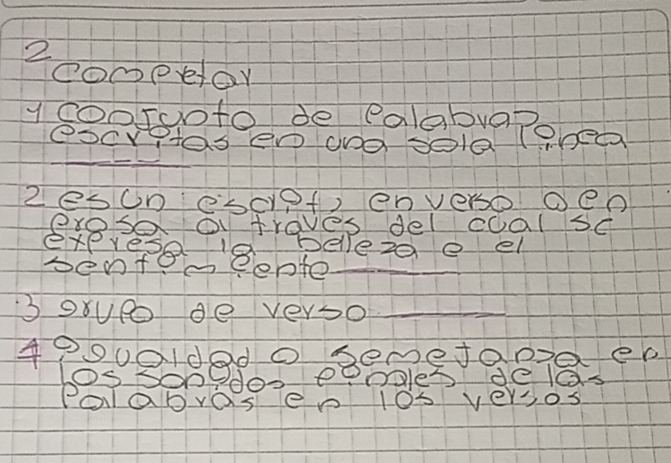 2
competar
1 conjunto de palabras
escritas en una sola linea
2 es un escrito en verso o en
prosa a través del cual se
expresa la belleza o el
sentimiento
3 grupo de verso
4 igualdad o semejanza en
los sonidos finales de las
palabras en los versos